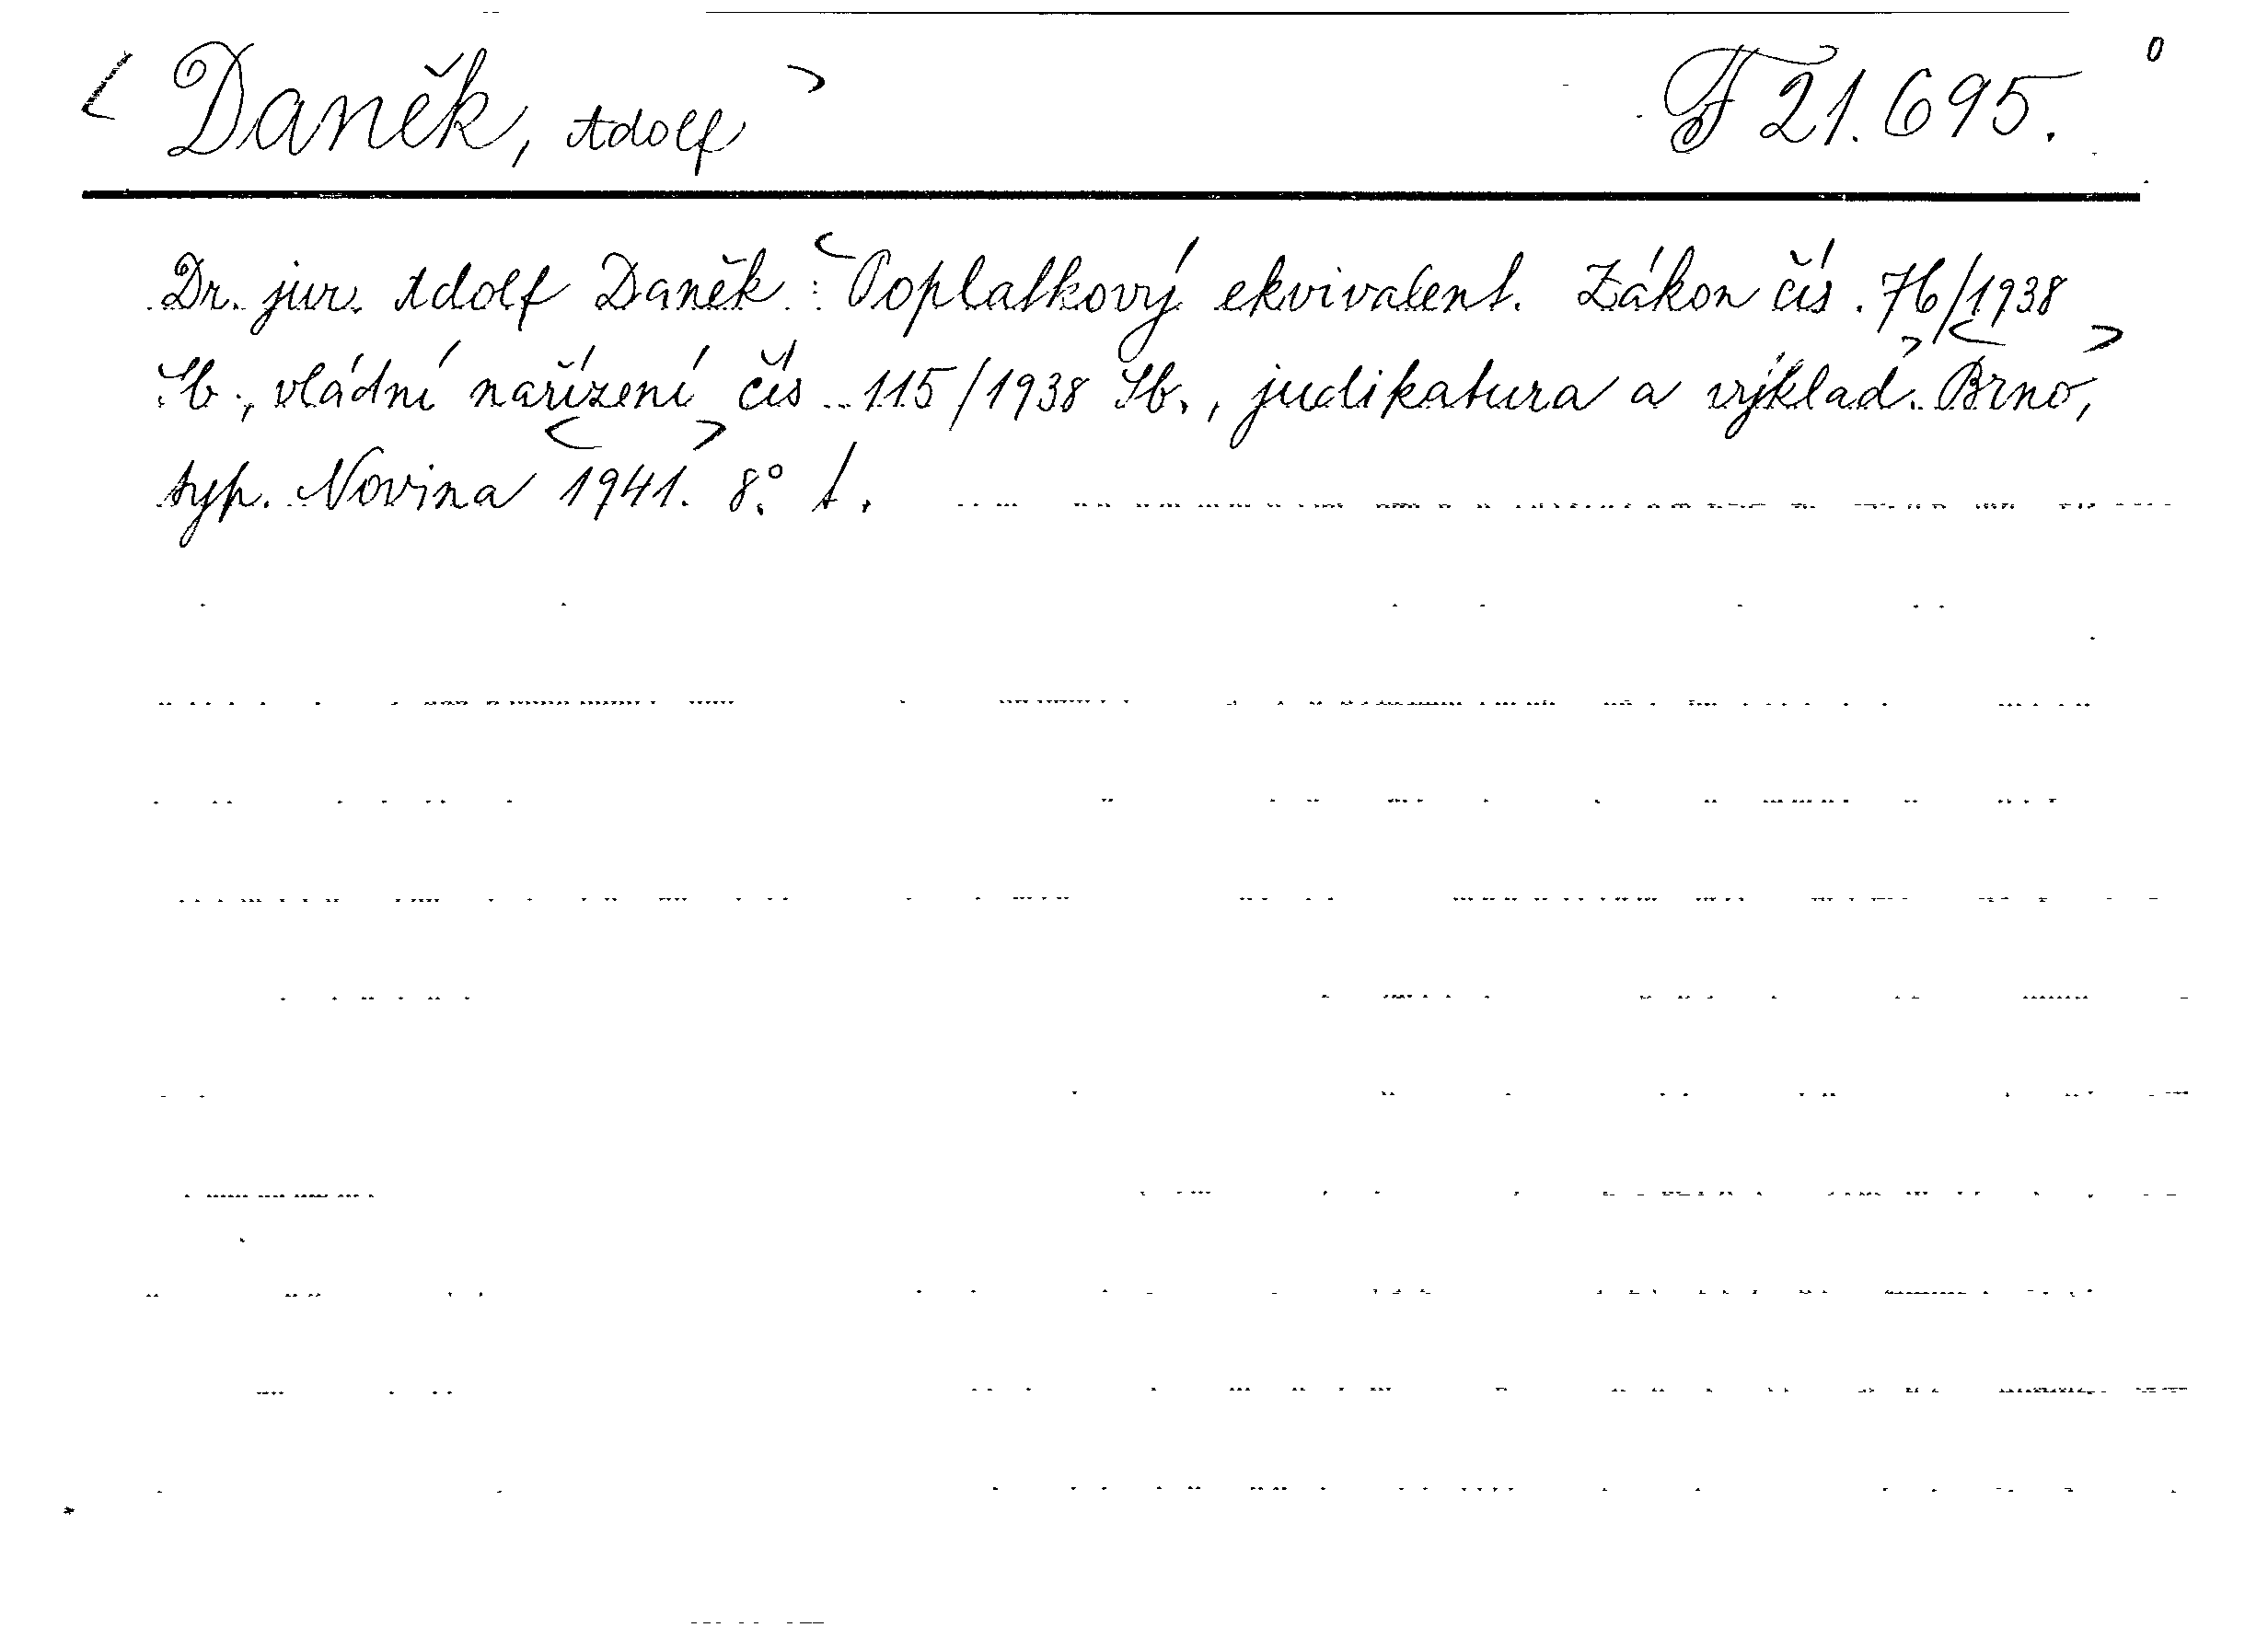 < Daněk, Adolf > F 21.695. 0
Dr. jur. Adolf Daněk : <Poplatkový ekvivalent. Zákon čís. 76/1938
Sb., vládní nařízení čís. 115/1938 Sb., judikatura a výklad.> <Brno,>
typ. Novina <1941.> 8°. t.